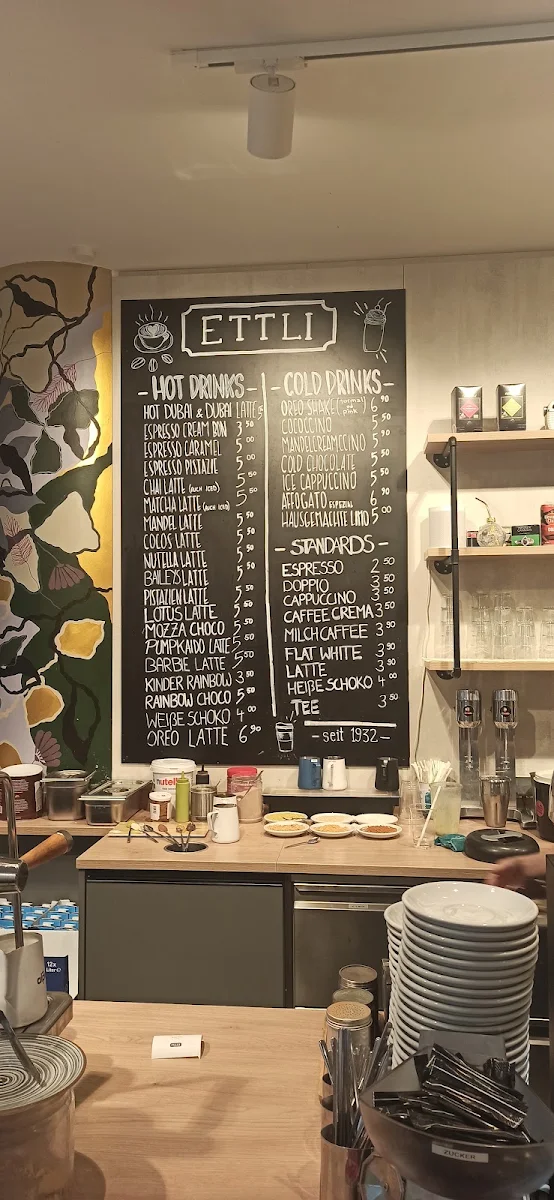 ETTLI
- HOT DRINKS -
HOT DUBAI & DUBAI LATTE
ESPRESSO CREAM BON 3 50
ESPRESSO CARAMEL 5 00
ESPRESSO PISTAZIE 5 00
CHAI LATTE (AUCH ICED) 5 50
MATCHA LATTE (AUCH ICED) 5 50
MANDEL LATTE 5 50
COCOS LATTE 5 50
NUTELLA LATTE 5 50
BAILEYS LATTE 5 50
PISTAZIEN LATTE 5 50
LOTUS LATTE 5 50
MOZZA CHOCO 5 50
PUMPKAIDO LATTE 5 50
BARBIE LATTE 5 50
KINDER RAINBOW 3 50
RAINBOW CHOCO 5 50
WEIẞE SCHOKO 4 00
OREO LATTE 6 90
- COLD DRINKS -
OREO SHAKE (normal / pink) 6 90
COCOCCINO 5 50
MANDELCREAMCCINO 5 90
COLD CHOCOLATE 5 50
ICE CAPPUCCINO 5 50
AFFOGATO ESPEZIAL 6 90
HAUSGEMACHTE LIMO 5 00
- STANDARDS -
ESPRESSO 2 50
DOPPIO 3 50
CAPPUCCINO 3 50
CAFFEE CREMA 3 50
MILCHCAFFEE 3 90
FLAT WHITE 3 90
LATTE 3 90
HEIẞE SCHOKO 4 00
TEE 3 50
- seit 1932 -
nutella
12x
Liter
ZUCKER